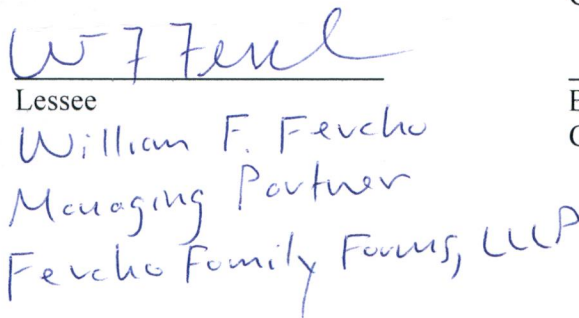 W F Ferch
Lessee
William F. Fercho
Managing Partner
Fercho Family Farms, LLLP